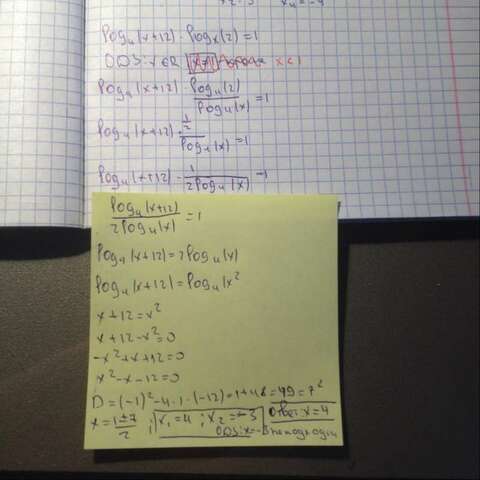 x₄ = -4
log₄(x+12) · logₓ(2) = 1
ODS: x ∈ R x < 1
log₄(x+12) · log₄(2)/log₄(x) = 1
log₄(x+12) · 1/2/log₄(x) = 1
log₄(x+12) · 1/2log₄(x) = 1
log₄(x+12)/2log₄(x) = 1
log₄(x+12) = 2log₄(x)
log₄(x+12) = log₄(x²
x+12 = x²
x+12-x² = 0
-x²+x+12 = 0
x²-x-12 = 0
D = (-1)² - 4·1·(-12) = 1+48 = 49 = 7²
x = 1±7/2 ; x₁ = 4 ; x₂ = -3 Ответ: x = 4
ODS: x = -3